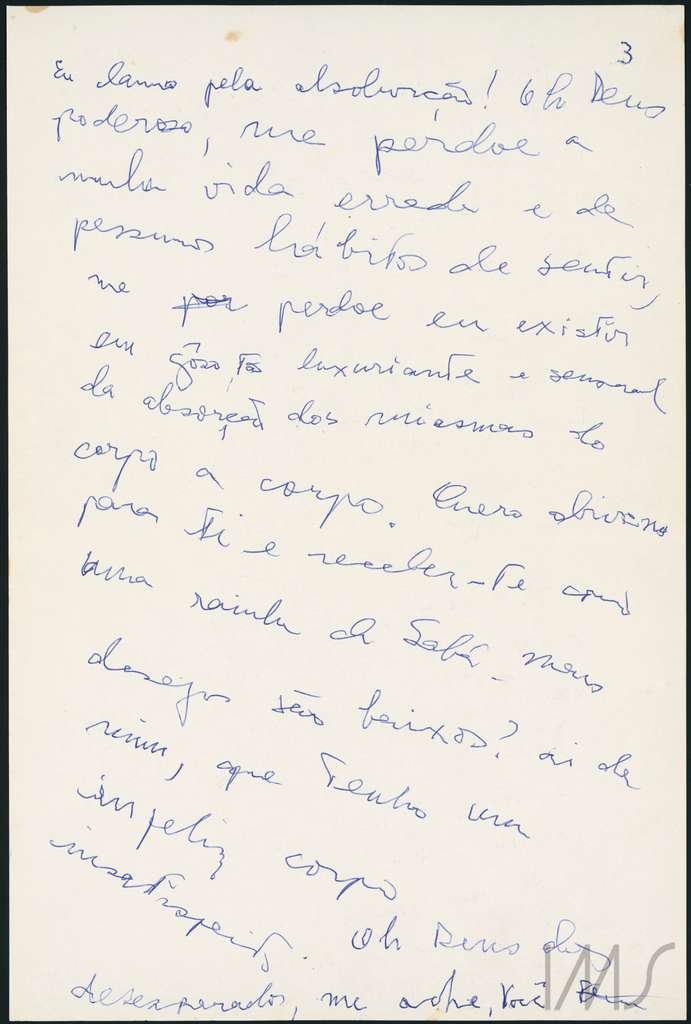 3
Eu clamo pela absolvição! Oh Deus
poderoso, me perdoe a
minha vida errada e de
péssimos hábitos de sentir,
me por perdoe eu existir
em gôso tão luxuriante e sensual
da absorção dos miasmas do
corpo a corpo. Quero
para ti e receber-te como
uma rainha de Sabá. Meus
desejos são baixos? ai de
mim, que tenho um
infeliz corpo
insatisfeito. Oh Deus dos
desesperados, me ache, Você
IMS